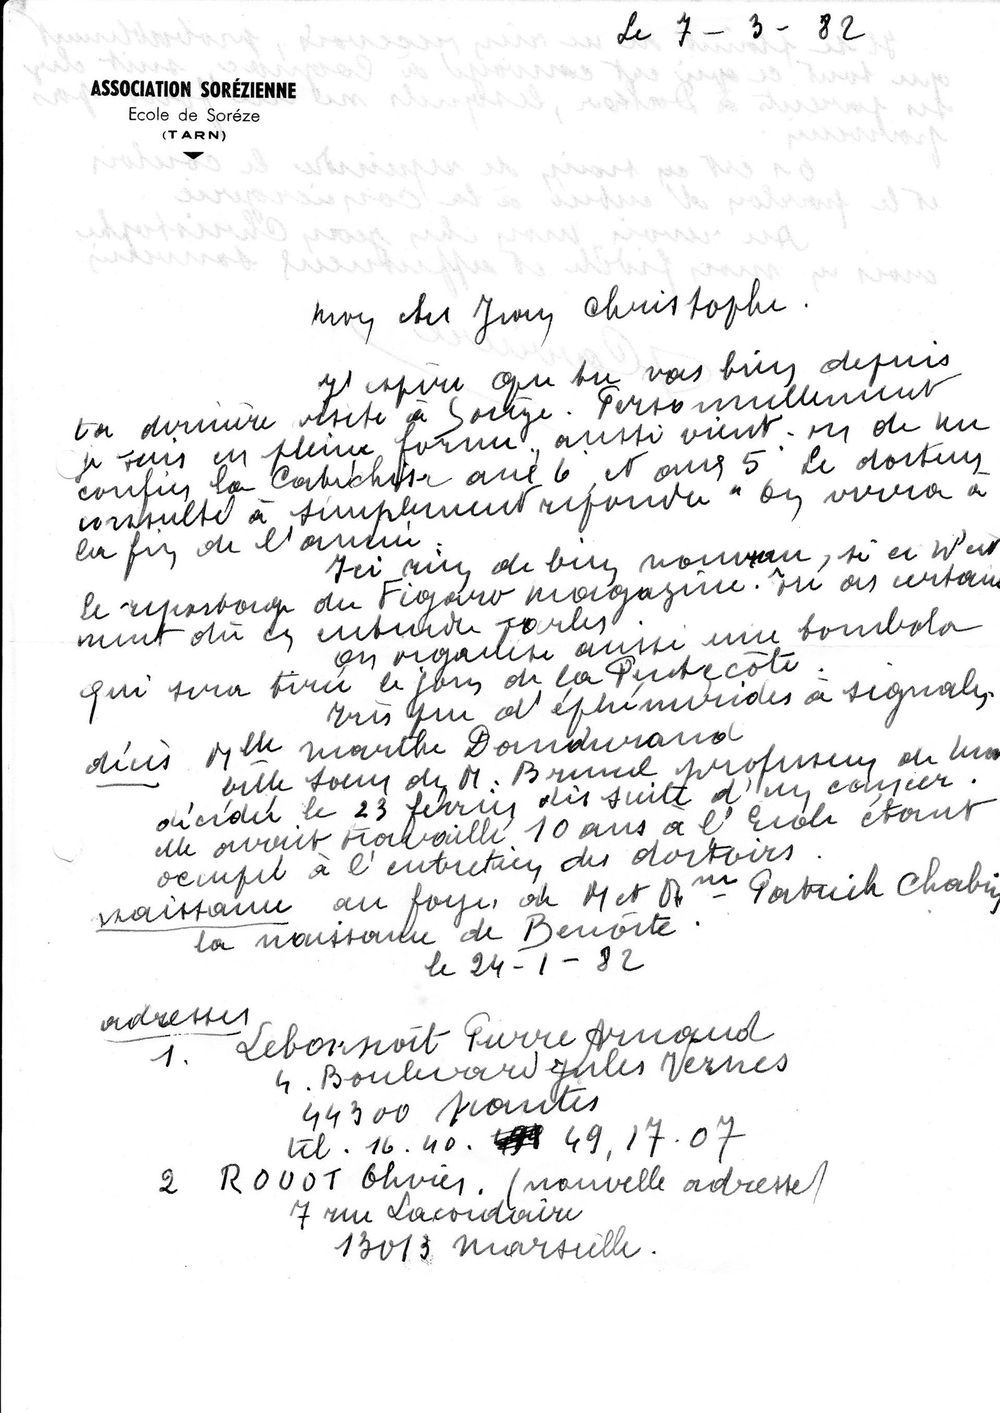 Le 7 - 3 - 82
ASSOCIATION SORÉZIENNE
Ecole de Soréze
(TARN)
mon cher Jean Christophe.
J'espère que tu vas bien depuis
ta dernière visite à Sorèze. Personnellement
je suis en pleine forme, aussi vient-on de me
confier la Catéchèse aux 6 et aux 5 Le docteur
consulté à simplement repondu "On verra à
la fin de l'année.
Ici rien de bien nouveau, si ce n'est
le reportage du Figaro magazine. Tu as certaine
ment dû en entendre parler
On organise aussi une tombola
qui sera tirée le jour de la Pentecôte.
très peu d'éphémérides à signaler
décès Mlle Marthe Dandurand
belle soeur de M. Brunel professeur de
décédée le 23 février des suite d'un cancer.
elle avait travaillé 10 ans a l'Ecole étant
occupée à l'entretien des dortoirs.
naissance au foyer de M et Mme Patrick Chabin
la naissance de Benoîte.
le 24-1-82
adresses
1. Pierre Arnaud
4. Boulevard Jules Vernes
44300 Nantes
tél. 16. 40. 49, 17. 07
2 ROUOT Olivier. (nouvelle adresse)
7 rue Lacordaire
13013 Marseille.